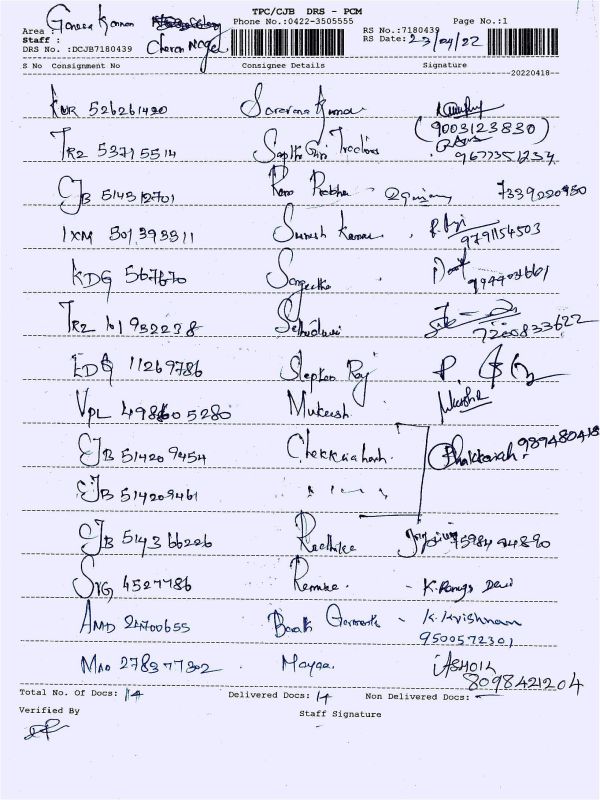 TPC/CJB DRS - PCM
Area : Ganesa Kannan
Phone No.:0422-3505555
Page No.:1
Staff : Cheran Nagar
RS No.:7180439
DRS No. :DCJB7180439
RS Date: 23/04/22
S No Consignment No Consignee Details Signature
20220418
526261420 Saravana Kumar
(9003123830)
TRZ 53715514 Sapthagiri Tractions 9677351234
CJB 514312701 Rama Prabha 7339220950
IXM 501393311 Suresh Kumar 9791154503
KDG 567670 Sangeetha
TRZ 101932238 7200833622
EDG 11269786 Stephen Raj
VPL 498605280 Mukesh Mukesh
CJB 514209454
CJB 514209461 " " " "
CJB 514366226 Radhika 7598494890
SVG 4527786 K. Ranga Devi
AMD 24700655 Garments - K. Krishnam
9500572301
MAO 278377302
8098421204
Total No. Of Docs: 14 Delivered Docs: 14 Non Delivered Docs: -
Verified By Staff Signature